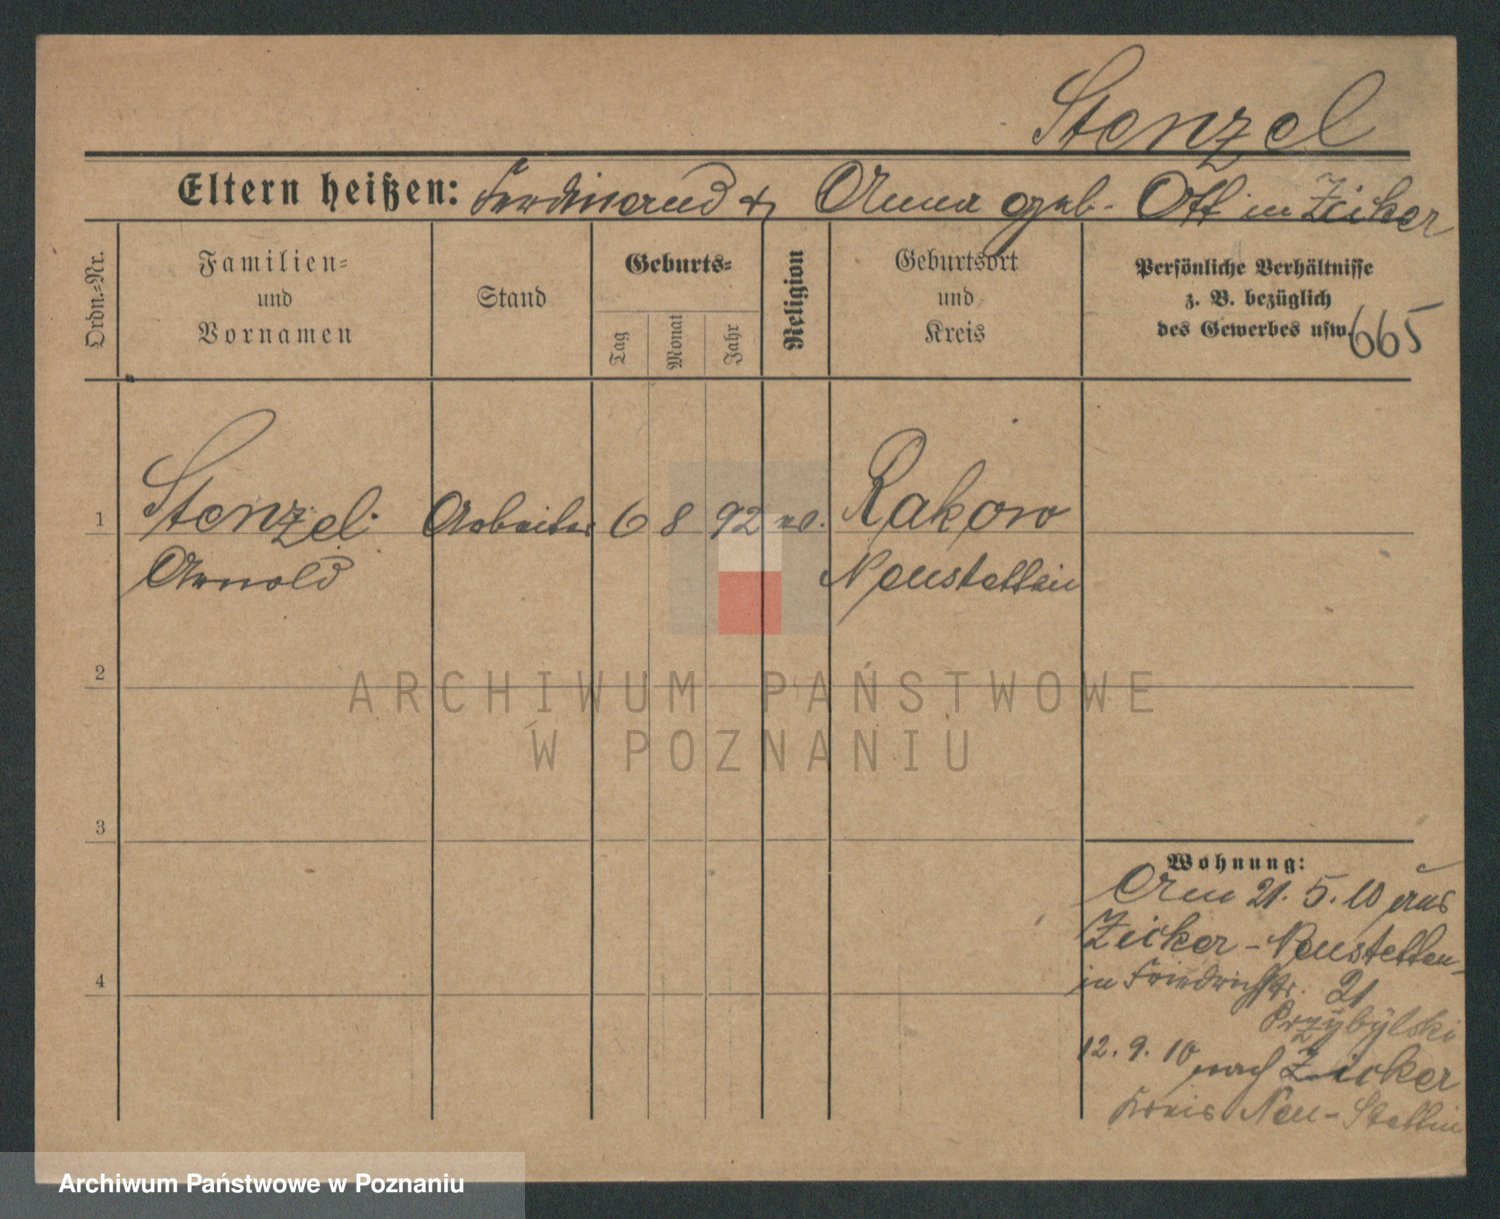 Stenzel
Eltern heißen: Ferdinand & Anna geb. Ott in Zicker
Ordn.-Nr.
Familien-
und
Vornamen
Stand
Geburts-
Tag
Monat
Jahr
Religion
Geburtsort
und
Kreis
Persönliche Verhältnisse
z. B. bezüglich
des Gewerbes usw.
665
1
Stenzel
Arnold
Arbeiter
6
8
92
ev.
Rakow
Neustettin
2
ARCHIWUM PAŃSTWOWE
W POZNANIU
3
Wohnung:
Am 21. 5. 10 aus
Zicker - Neustettin
in Friedrichstr. 21
Przybylski
4
12. 9. 10 nach Zicker
Kreis Neu-Stettin
Archiwum Państwowe w Poznaniu